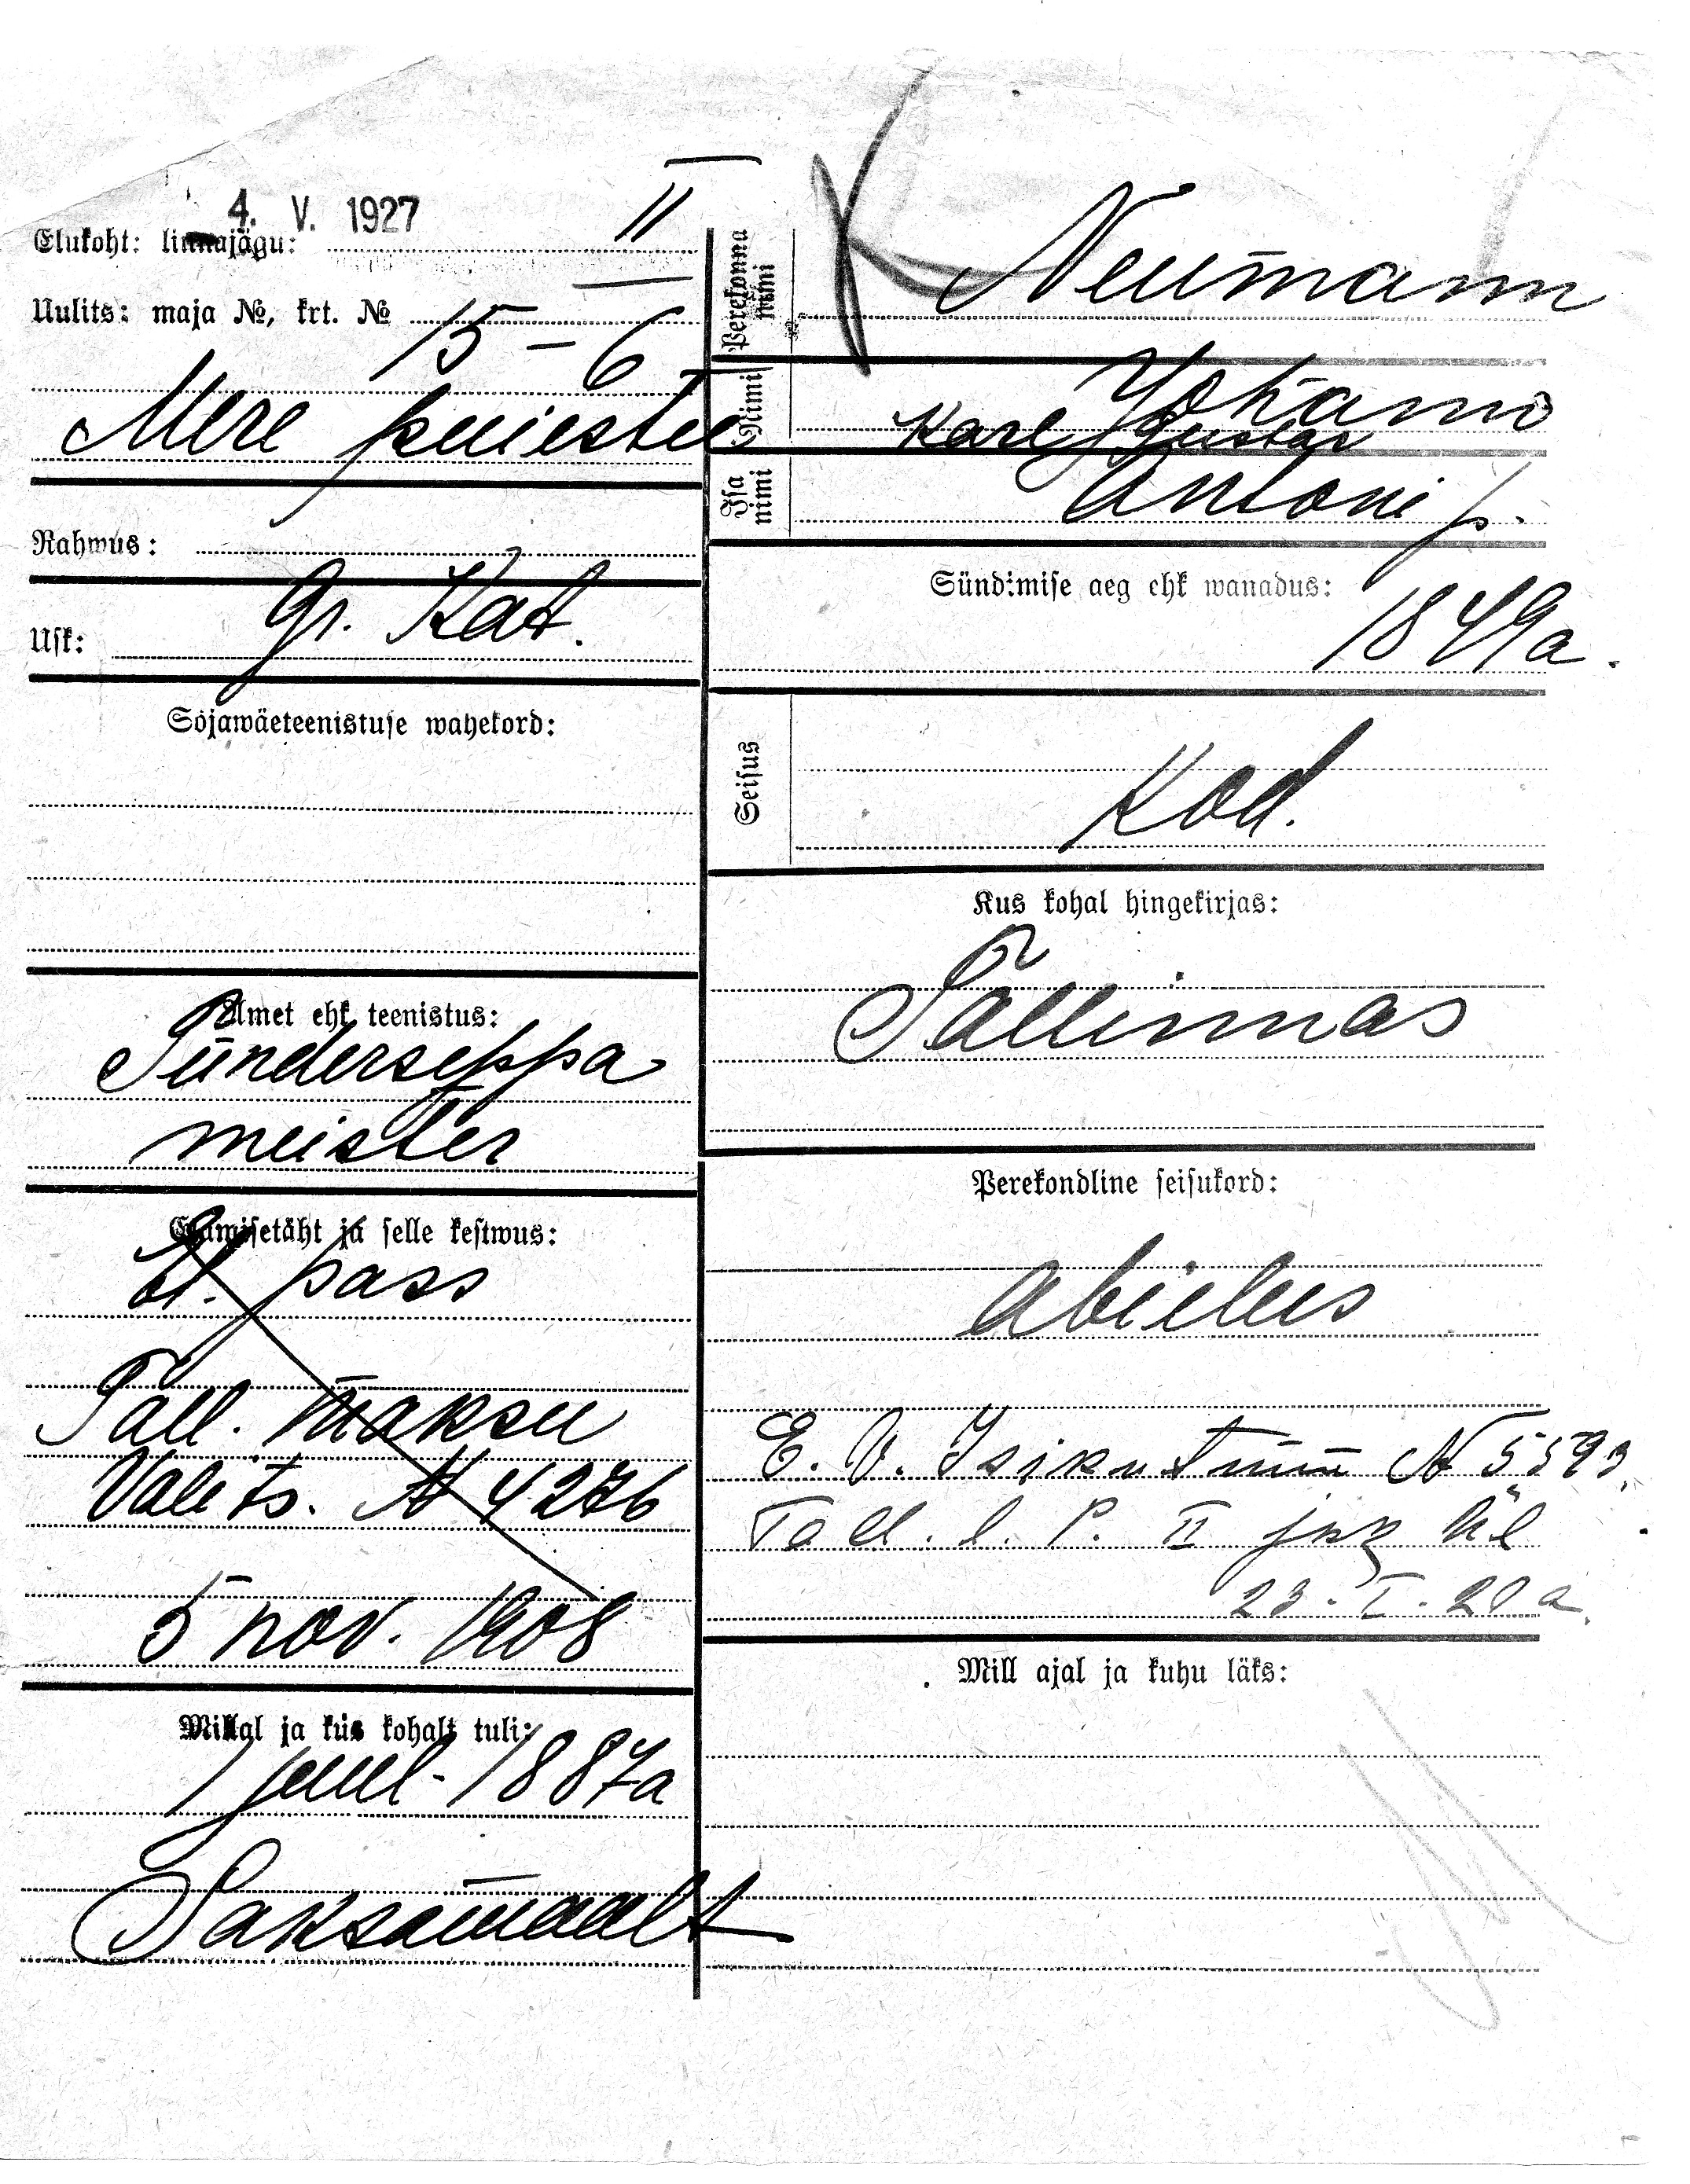 4. V. 1927
Elukoht: linnajägu: II
Uulits: maja №, krt. № 15-6
Mere puiestee
Rahwus:
Usk: Gr. Kat.
Sõjawäeteenistuse wahekord:
Amet ehk teenistus:
Tünderseppa
meister
Elamisetäht ja selle kestwus:
El. pass
Tall. maksu
Valits. N 4276
5 nov. 1908
Millal ja kus kohalt tuli:
1 juul. 1887a
Saksamaalt
K
Perekonna nimi Neumann
Nimi Johann
Karl Gustav
Isa nimi Antoni p.
Sündimise aeg ehk wanadus:
1849a.
Seisus
Kod.
Kus kohal hingekirjas:
Tallinnas
Perekondline seisukord:
abielus
E. V. Isikutunn N 5593.
Tall. l. P. II jsk ül
23. I. 20 a.
Mill ajal ja kuhu läks: